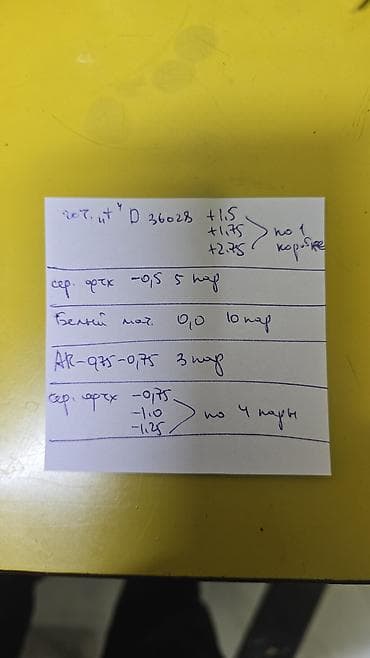 гот. „+" D 36028 +1.5
+1.75 по 1
+2.75 коробке
сер. фтх -0,5 5 пар
Белый мат. 0,0 10 пар
AR-0,75-0,75 3 пар
сер. фтх -0,75
-1.0 по 4 пары
-1.25